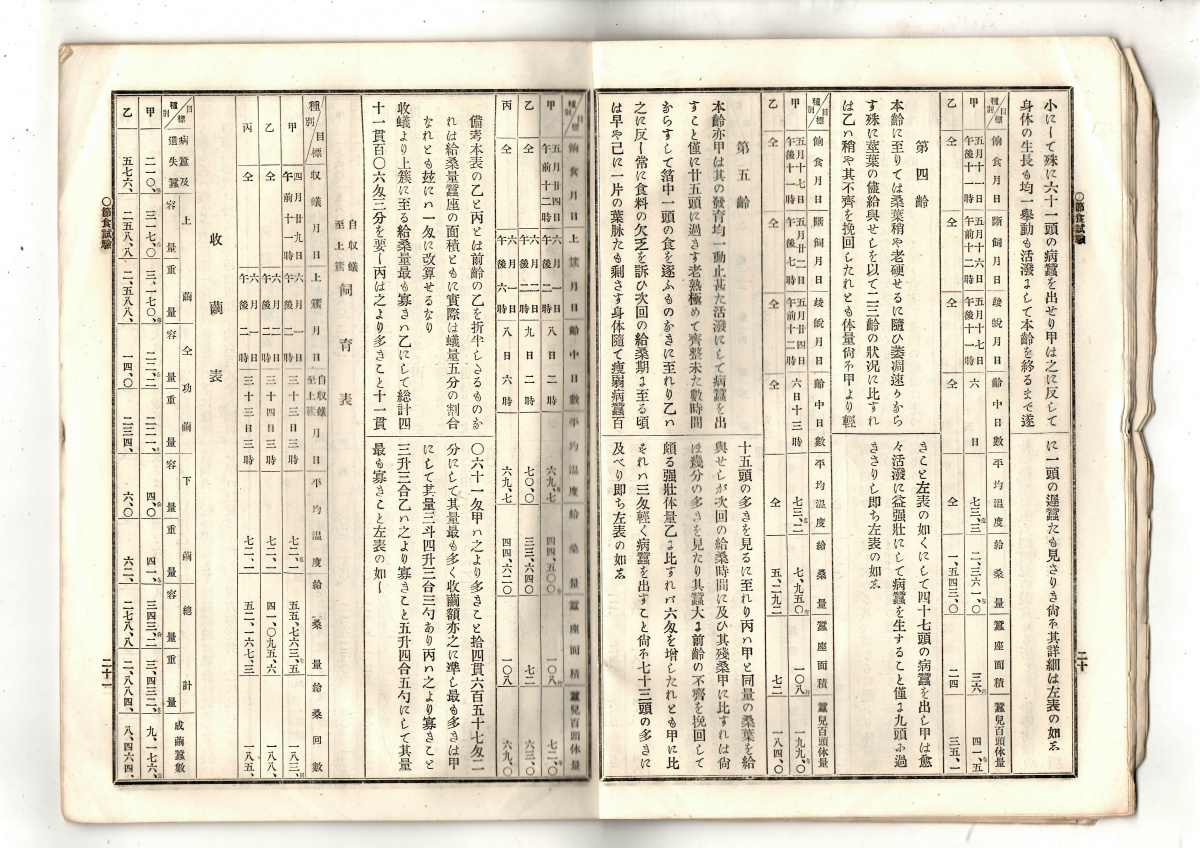 ○節食試験
二十
小にして殊に六十一頭の病蠶を出せり甲は之に反して
身体の生長も均一擧動も活潑にして本齡を終るまで遂
に一頭の遲蠶たも見さりき尙ほ其詳細は左表の如し
種別／目標 飾食月日 斷飼月日 起脫月日 齡中日數 平均溫度 給桑量 蠶座面積 蠶兒百頭体量
甲 五月十一日午後十一時 五月十六日午前十二時 五月十七日午後十一時 六日 七三、三 二、三六一、〇 三六 四一、五
乙 仝 仝 仝 仝 仝 一、五四三、〇 二四 三五、一
第四齡
本齡に至りては桑葉稍や老硬せるに隨ひ萎凋速りから
す殊に莖葉の儘給與せしを以て二三齡の狀況に比すれ
は乙ハ稍や其不齊を挽回したれとも体量尙ほ甲より輕
きこと左表の如くにして四十七頭の病蠶を出し甲は愈
々活潑に益强壯にして病蠶を生すること僅に九頭に過
きさりし即ち左表の如し
種別／目標 飾食月日 斷飼月日 起脫月日 齡中日數 平均溫度 給桑量 蠶座面積 蠶兒百頭体量
甲 五月十七日午後十一時 五月廿二日午後七時 五月廿四日午前十二時 六日十三時 七三、二 七、九五〇 一〇八 一九九、〇
乙 仝 仝 仝 仝 仝 五、二九二 七二 一八四、〇
第五齡
本齡亦甲は其の發育均一動止甚た活潑にして病蠶を出
すこと僅に廿五頭に過きす老熟極めて齊整未た數時間
からすして箔中一頭の食を逐ふものなきに至れり乙ハ
之に反し常に食料の欠乏を訴ひ次回の給桑期に至る頃
は早や已に一片の葉脉たも剩さす身体隨て瘦弱病蠶百
十五頭の多きを見るに至れり丙ハ甲と同量の桑葉を給
與せしが次回の給桑時間に及ひ其殘桑甲に比すれは尙
ほ幾分の多きを見たり其蠶大に前齡の不齊を挽回して
頗る强壯体量乙に比すれバ六匁を增したれとも甲に比
それハ三匁輕く病蠶を出すこと尙ほ七十三頭の多きに
及べり即ち左表の如し
種別／目標 飾食月日 上簇月日 齡中日數 平均溫度 給桑量 蠶座面積 蠶兒百頭体量
甲 五月廿四日午前十二時 六月一日午後二時 八日二時 六九、七 四四、五〇〇 一〇八 七二、〇
乙 仝 六月二日午後二時 九日二時 七〇、〇 三三、六四〇 七二 六三、〇
丙 仝 六月一日午後六時 八日六時 六九、七 四四、六二〇 一〇八 六九、〇
備考本表の乙と丙とは前齡の乙を折半しさるものか
れは給桑量蠶座の面積ともに實際は蟻量五分の割合
なれとも玆に一匁に改算せるなり
收蟻より上簇に至る給桑量最も寡きハ乙にして總計四
十一貫百〇六匁三分を要し丙は之より多きこと十一貫
〇六十一匁甲ハ之より多きこと拾四貫六百五十七匁二
分にして其量最も多く收繭額亦之に準し最も多きは甲
にして其量三斗四升三合三勺あり丙ハ之より寡きこと
三升三合乙ハ之より寡きこと五升四合五勺にして其量
最も寡きこと左表の如し
自收蟻至上簇飼育表
種別／目標 收蟻月日 上簇月日 自收蟻至上簇月日 平均溫度 給桑量 給桑回數
甲 四月廿九日午前十一時 六月一日午後二時 三十三日三時 七二、一 五五、七六三、五 一八三、
乙 仝 六月二日午後二時 三十四日三時 七二、一 四一、〇九五、六 一八八、
丙 仝 六月一日午後二時 三十三日三時 七二、一 五二、一六七、三 一八五、
收繭表
種別／目標 病蠶及遺失蠶 上繭 容量 重量 仝功繭 容量 重量 下繭 容量 重量 總計 容量 重量 成繭蠶數
甲 二一〇、 三一七、〇 三、一七〇、 二二、二 二二一、 四、〇 四一、 三四三、二 三、四三二、 九、一七六、
乙 五七六、 二五八、八 二、五八八、 一四、〇 二三四、 六、〇 六二、 二七八、八 二、八八四、 八、四六四、
○節食試験
二十一